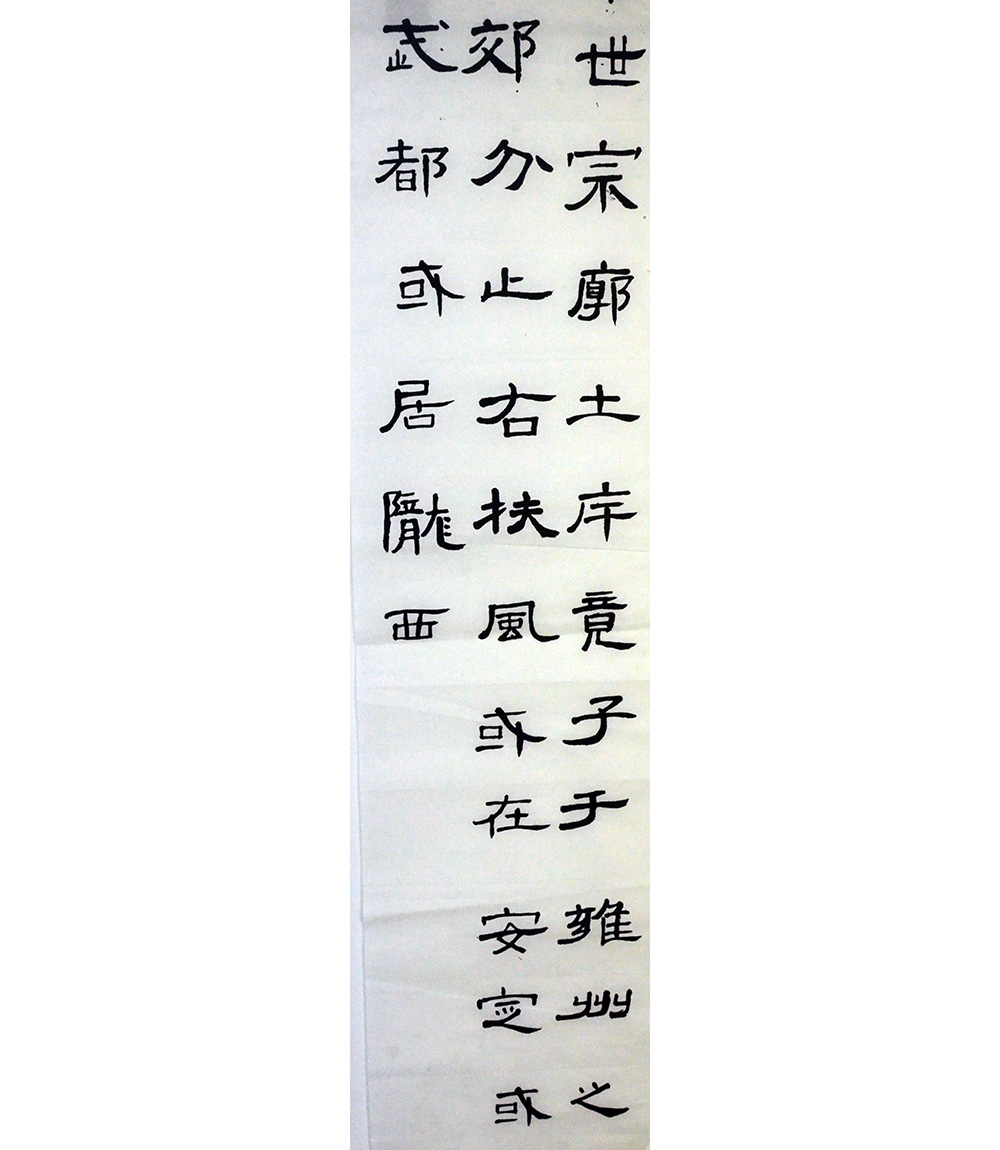 世宗廓土斥竟子于雍州之
郊分止右扶風或在安定或
武都或居隴西